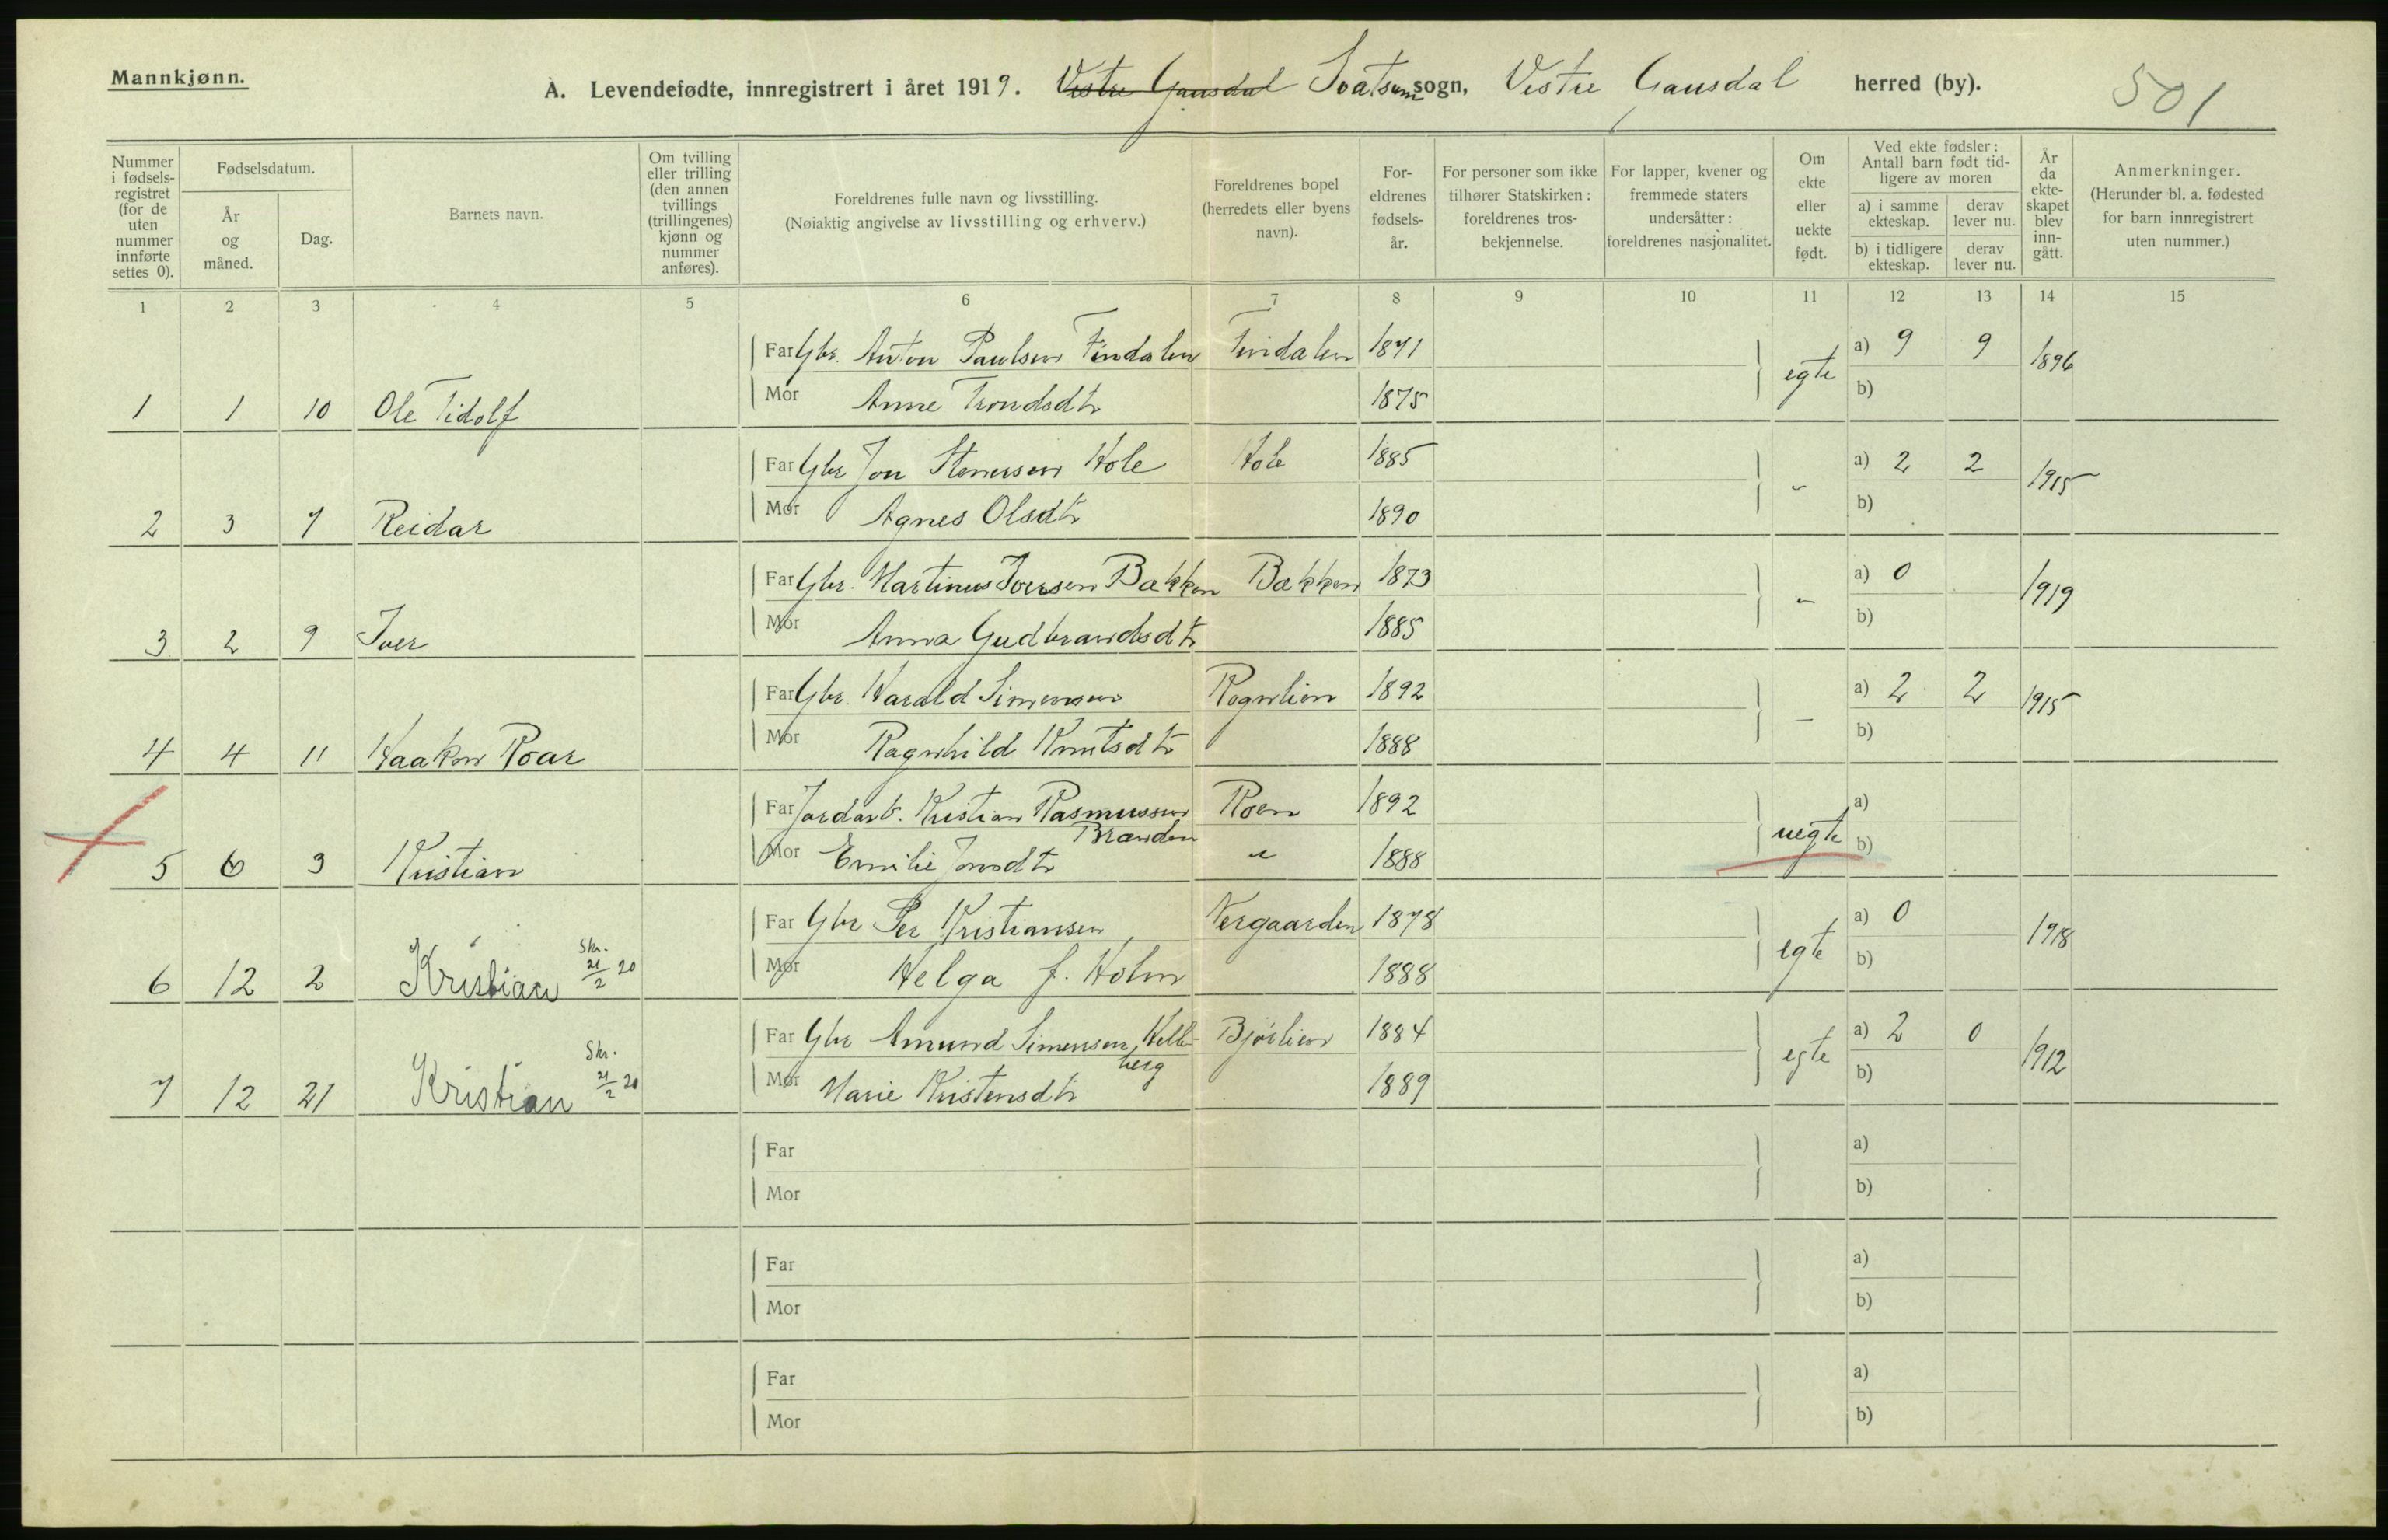 Mannkjønn.
A. Levendefødte, innregistrert i året 1919. Vestre Gausdal Svatsum sogn, Vestre Gausdal herred (by). 501
Nummer i fødsels-registret (for de uten nummer innførte settes 0).
Fødselsdatum.
År og måned.
Dag.
Barnets navn.
Om tvilling eller trilling (den annen tvillings (trillingenes) kjønn og nummer anføres).
Foreldrenes fulle navn og livsstilling.
(Nøiaktig angivelse av livsstilling og erhverv.)
Foreldrenes bopel (herredets eller byens navn).
For-eldrenes fødsels-år.
For personer som ikke tilhører Statskirken: foreldrenes tros-bekjennelse.
For lapper, kvener og fremmede staters undersåtter: foreldrenes nasjonalitet.
Om ekte eller uekte født.
Ved ekte fødsler: Antall barn født tid-ligere av moren
a) i samme ekteskap.
derav lever nu.
b) i tidligere ekteskap.
derav lever nu.
År da ekte-skapet blev inn-gått.
Anmerkninger.
(Herunder bl. a. fødested for barn innregistrert uten nummer.)
1 2 3 4 5 6 7 8 9 10 11 12 13 14 15
Far Gbr. Anton Paulsen Findalen Findalen 1871 a) 9 9 1896
1 1 10 Ole Tidolf Mor Anne Trondsdtr 1875 egte b)
Far Gbr Jon Stenersen Hole Hole 1885 a) 2 2 1915
2 3 7 Reidar Mor Agnes Olsdtr 1890 " b)
Far Gbr. Martinus Iversen Bækken Bækken 1873 a) 0 1919
3 2 9 Iver Mor Anna Gudbrandsdtr 1885 " b)
Far Gbr. Harald Simensen Rognlien 1892 a) 2 2 1915
4 4 11 Haakon Roar Mor Ragnhild Knutsdtr 1888 — b)
Far Jordarb. Kristian Rasmussen Roen 1892 a)
Branden
5 6 3 Kristian Mor Emilie Jonsdtr " 1888 uegte b)
Far Gbr Per Kristiansen Nergaarden 1878 a) 0 1918
6 12 2 Kristian Skr. 21/2 20 Mor Helga f. Holm 1888 egte b)
Far Gbr Amund Simensen Helle- Bjørlien 1884 a) 2 0 1912
berg
7 12 21 Kristian Skr. 21/2 20 Mor Marie Kristensdtr 1889 egte b)
Far a)
Mor b)
Far a)
Mor b)
Far a)
Mor b)